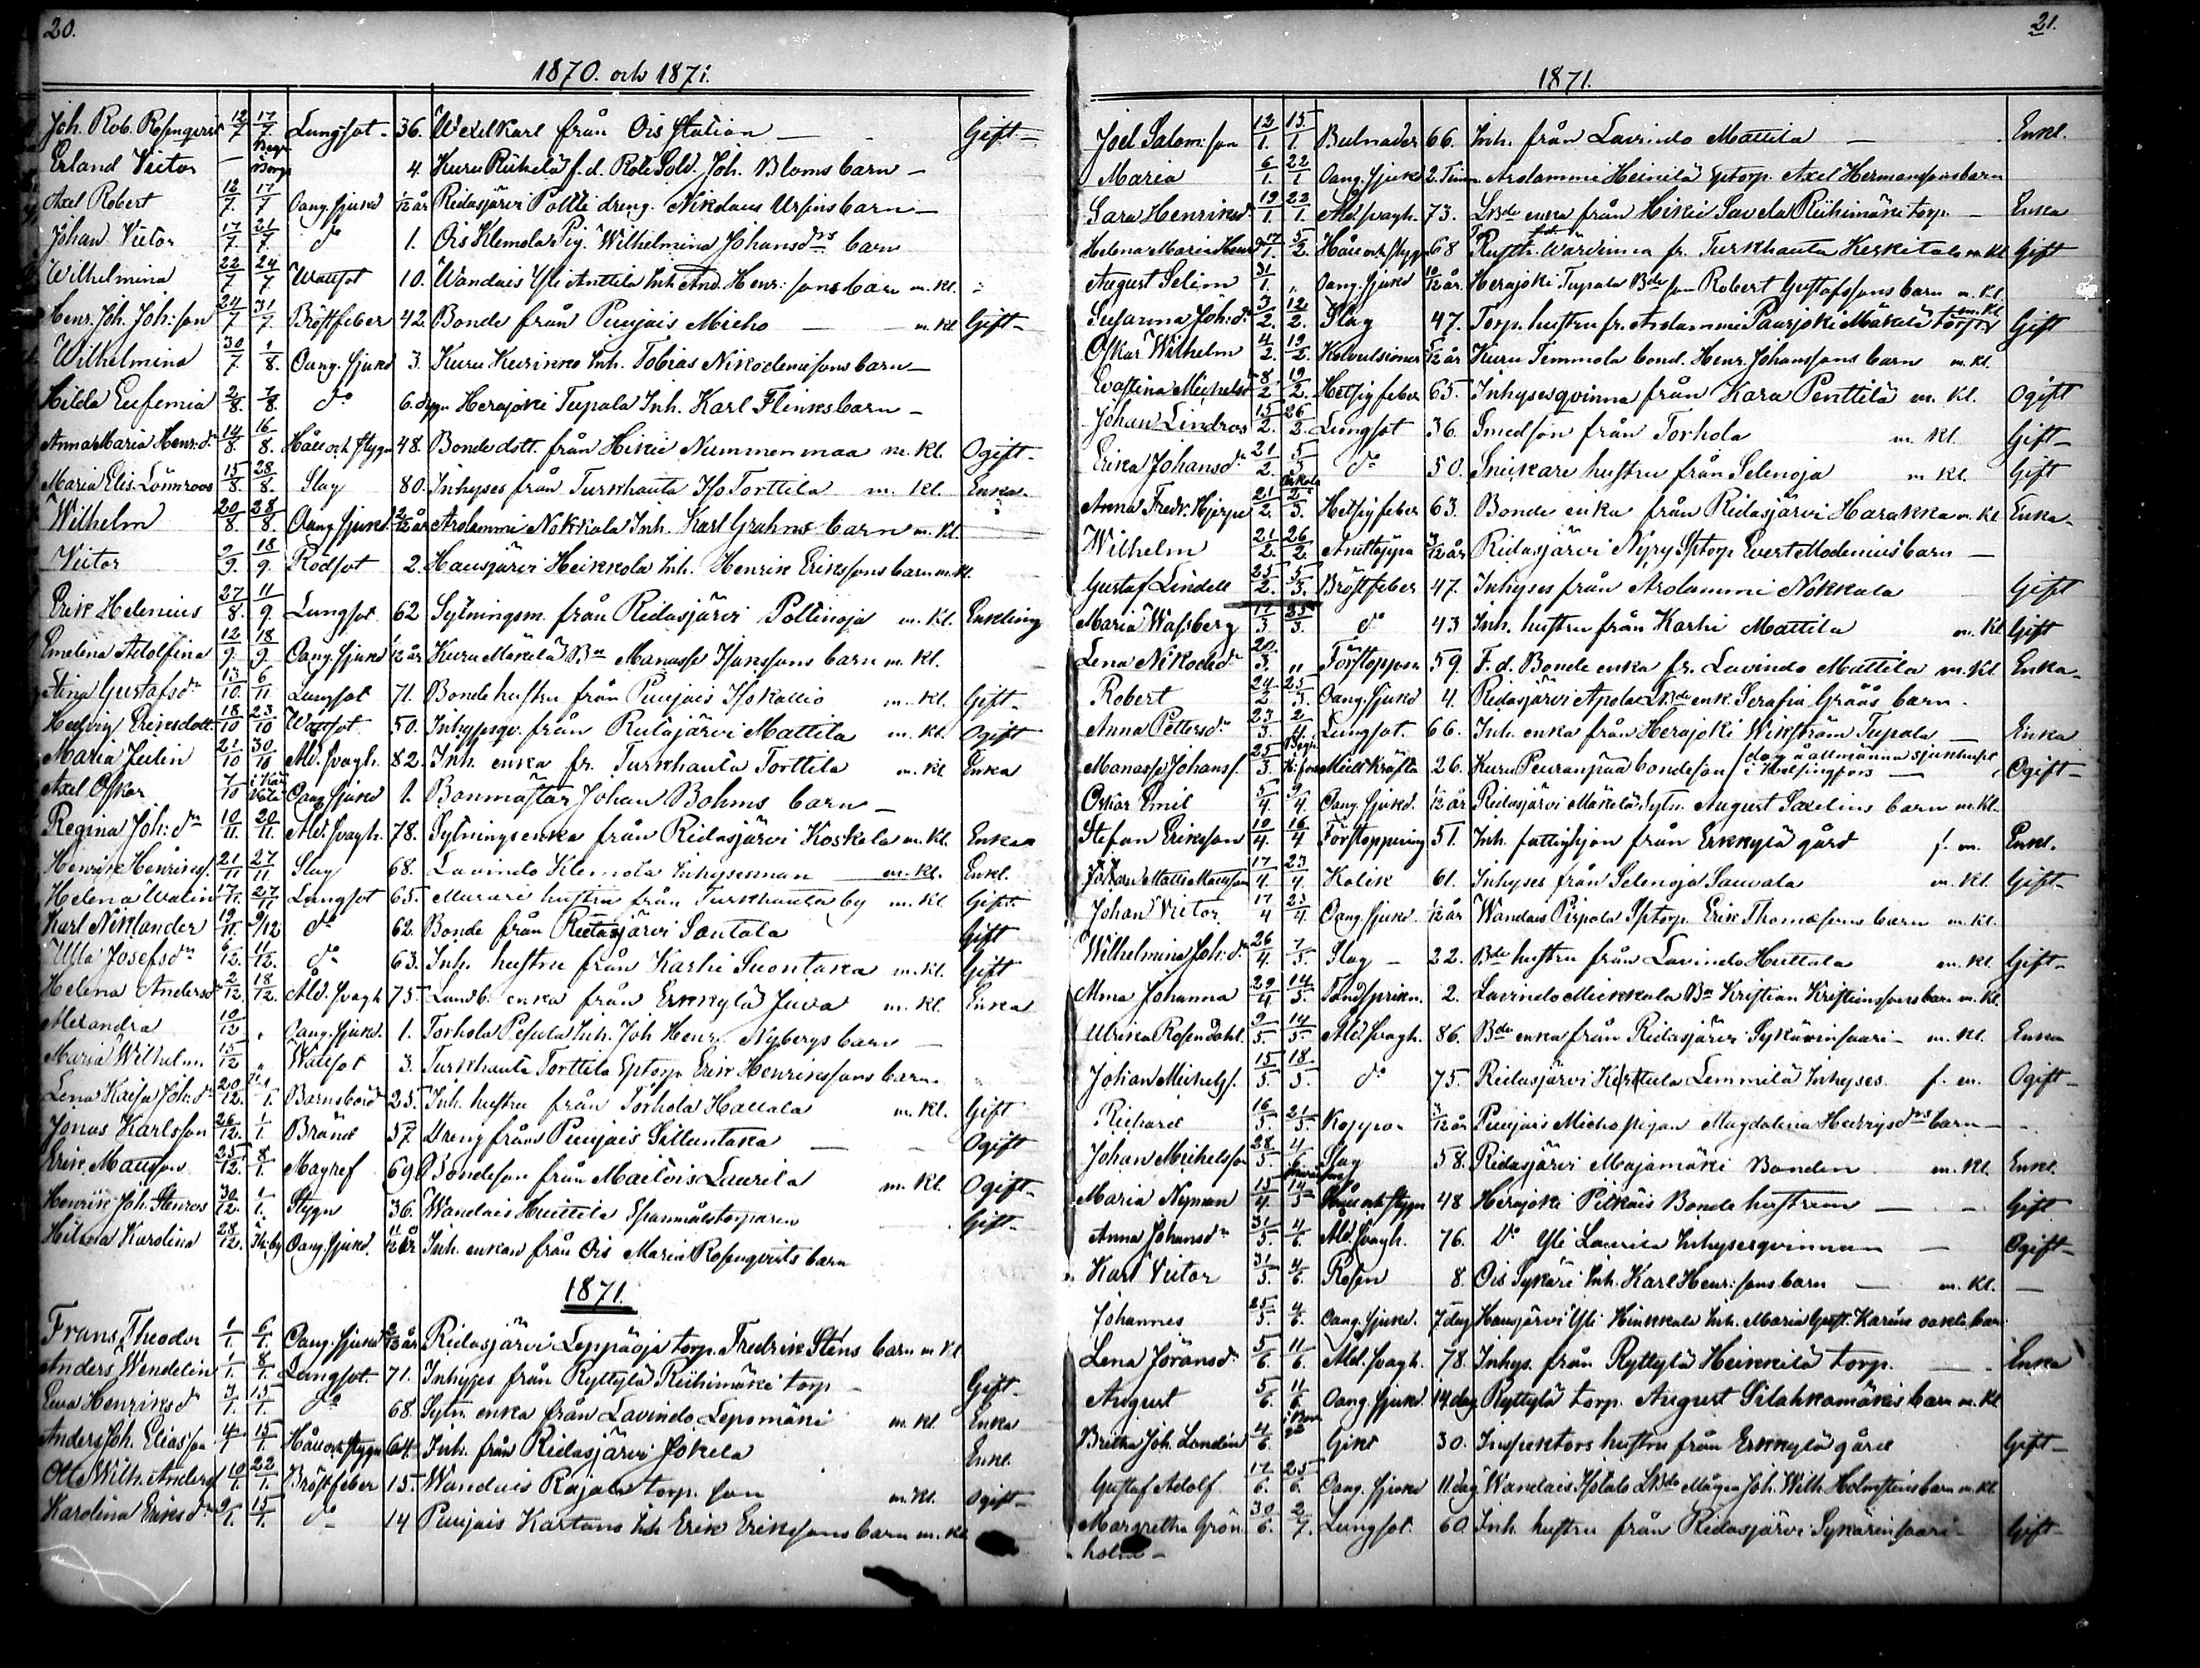 20.
1870. och 1871.
Joh. Rob. Rosenqvist 12/7 17/7 Lungsot 36. Wexelkarl från Ois Station — Gift
Erland Victor — Begr i Borgå 4. Kuru Rühelä f.d. Rote Sold. Joh. Bloms barn —
Axel Robert 12/7. 17/7 Oang. sjukd 1/12 år Ridasjärvi Poltti dreng. Nikolaus Ursins barn —
Johan Victor 17/7. 21/7. do 1. Ois Klemola Pig. Wilhelmina Johansdrs barn
Wilhelmina 22/7 24/7 Wattsot 10. Wandais Yli Anttila Inh And. Henr:sons barn m. kl.
Henr. Joh. Joh:son 24/7 31/7. Bröstfeber 42. Bonde från Punjais Micho — m. kl Gift
Wilhelmina 30/7. 1/8. Oang. sjukd 3. Kuru Kurikko Inh. Tobias Nikodemisons barn —
Hilda Eufemia 2/8. 7/8. do 6. dygn Herajoki Tupala Inh. Karl Flinks barn —
Anna Maria Henr:dr 14/8 16/8. Håll och styng 48. Bonde dott. från Hikie Nummenmaa m. kl. Ogift
Maria Elis. Lönnroos 15/8. 28/8. Slag 80. Inhyses från Turkhauta Iso Torttila m. kl. Enka
Wilhelm 20/8. 28/8. Oang. sjukd. 2/12 år Arolammi Nokkala Inh. Karl Grahns barn m. kl.
Victor 9/9. 18/9. Rödsot 2. Hausjärvi Heikkola Inh. Henrik Erikssons barn m. kl.
Erik Helenius 27/8. 11/9. Lungsot 62 Sytningsm. från Ridasjärvi Poltinoja m. kl. Enkling
Emelina Adolfina 12/9. 18/9. Oang. sjukd 1/12 år Kuru Mäkelä Bn Manasse Isakssons barn m. kl.
Stina Gustafsdr 13/10. 6/11 Lungsot 71. Bonde hustru från Punjais Isokallio m. kl. Gift
Hedvig Eriksdott 18/10 23/10 Wattsot 50. Inhysesqv. från Ridasjärvi Mattila m. kl. Ogift
Maria Julin 21/10 30/10 Ald. svagh. 82. Inh. enka fr. Turkhauta Torttila m. kl Enka
Axel Oskar 7/10 Oang sjukd 1. Banmästar Johan Bohms barn —
Regina Joh:dr 10/11. 20/11. Ald. svagh. 78. Sytningsenka från Ridasjärvi Koskela m. kl. Enka
Henrik Henrikss. 21/11 27/11 Slag 68. Lavindo Klemola Inhysesman — m. kl. Enkl.
Helena Walin 17/11. 27/11 Lungsot 65. Murare hustru från Turkhauta by m. kl Gift
Karl Niklander 19/11. 9/12 do 62. Bonde från Ridasjärvi Santala Gift
Ulla Josefsdr 6/12. 11/12. do 63. Inh. hustru från Karhi Suontaka m. kl. Gift
Helena Andersdr 2/12. 18/12. Ald. svagh 75. Landb. enka från Erkkylä Juva m. kl. Enka
Alexandra 10/12 „ Oang. sjukd. 1. Torhola Pesula Inh. Joh Henr. Nybergs barn —
Maria Wilhelm. 15/12 „ Wattsot 3. Turkhauta Torttila Sptorp Erik Henrikssons barn
Lena Kaisa Joh:dr 20/12. 1/1. Barnsbörd 25. Inh. hustru från Torhola Hattala m. kl. Gift
Jonas Karlsson 26/12. 1/1. Bränd 57. Dreng från Punjais Silluntaka — Ogift
Erik Mattsson 25/12. 8/1. Magref 69 Bondeson från Maitois Laurila m. kl. Ogift
Henrik Joh. Stenros 30/12. 1/1. Stygn 36. Wandais Huittila Spanmålstorparen Gift
Hilma Karolina 28/12. Oang. sjukd. 11/12 år Inh. enkan från Ois Maria Rosenqvists barn
1871.
Frans Theodor 1/1. 6/1. Oang. sjukd 2/12 år Ridasjärvi Leppäoja torp. Fredrik Stens barn m kl
Anders Wendelin 1/1. 8/1. Lungsot. 71. Inhyses från Ryttylä Riihimäki torp — Gift
Eva Henriksdr 7/1. 15/1. do 68. Sytn. enka från Lavindo Lepomäki m. kl Enka
Anders Joh. Eliasson 4/1 15/1. Håll och stygn 64. Inh. från Ridasjärvi Jokela Enkl.
Otto Wilh. Anderss 10/1. 22/1. Bröstfeber 15. Wandais Rajala torp. son m. kl. Ogift
Karolina Eriksdr 9/1. 15/1. do 14 Punjais Kartano Inh Erik Erikssons barn m. kl
21.
1871.
Joel Salom:son 12/1. 15/1. Bulnader 66. Inh. från Lavindo Mattila — Enkl.
Maria 6/1. 22/1 Oang. sjukd 2. Tim Arolammi Heinilä Sptorp. Axel Hermanssons barn
Sara Henriksdr 19/1. 22/1. Ald. svagh. 73. Lbde enka från Hikie Savela Riihimäki torp — Enka
Helena Maria Henrdr 17/1. 5/2. Håll och stygn 68 Rusth. Wärdinna fr. Turkhauta Keskitalo m. kl Gift
August Selim 31/1. „ Oang. sjukd 10/12 år. Herajoki Tupala Bde son Robert Gustafssons barn m. kl.
Susanna Joh:dr 3/2. 12/2. Slag 47. Torp. hustru fr. Arolammi Paarjoki Mäkelä torp m. kl Gift
Oskar Wilhelm 4/2. 19/2. Kolvulsioner 5/12 år Kuru Temmola bond. Henr. Johanssons barn m. kl.
Evastina Michelsdr 8/2 19/2. Hetsig feber 65. Inhysesqvinna från Kara Penttilä m. kl. Ogift
Johan Lindros 15/2. 26/2. Lungsot 36. Smedson från Torhola m. kl. Gift
Erika Johansdr 21/2. 5/3 do 50. Snickare hustru från Selenoja m. kl. Gift
Anna Fredr. Hjerpe 21/2. Hetsig feber 63. Bonde enka från Ridasjärvi Harakka m. kl. Enka
Wilhelm 21/2. 26/2. Andtäppa 3/12 år Ridasjärvi Nyry Sptorp Evert Modenius barn —
Gustaf Lindell 25/2. 5/3. Bröstfeber 47. Inhyses från Arolammi Nokkala Gift
Maria Wassberg 12/3 25/3. do 43 Inh. hustru från Karhi Mattila m. kl. Gift
Lena Nikodr 20/3. „ Förstoppn 59. F. d. Bonde enka fr. Lavindo Mattila m. kl. Enka
Robert 24/2 25/3. Oang. sjukd 4. Ridasjärvi Apola Lbde enk. Serafia Grååš barn.
Anna Pettersdr 23/3 2/4. Lungsot. 66. Inh. enka från Herajoki Wikström Tupala — Enka
Manasse Johanss. 25/3. Kräfta 26. Kuru Peuranpää bondeson (dog å allmänna sjukhuset i Helsingfors — Ogift
Oskar Emil 5/4. 9/4 Oang. sjukd. 1/12 år Ridasjärvi Mäkelä Sytn. August Saxelins barn m. kl.
Stefan Eriksson 10/4. 16/4 Förstoppning 51. Inh. fattighjon från Erkkylä gård f. m. Enkl.
Johan Mattsson 17/4. 23/4. Kolik 61. Inhyses från Selenoja Sauvala m. kl. Gift
Johan Victor 17/4 23/4. Oang. sjukd. 1/12 år Wandais Pirpola Sptorp. Erik Thomassons barn m. kl.
Wilhelmina Joh:dr 26/4. 7/5. Slag — 22. Bde hustru från Lavindo Huttala m. kl Gift
Alma Johanna 29/4 14/5. Tandsprickn. 2. Lavindo Mikkola Bn Kristian Kristianssons barn m. kl.
Ulrika Rosendahl. 9/5. 14/5. Ald svagh. 86. Bde enka från Ridasjärvi Sykärinsaari m. kl. Enka
Johan Michelss. 15/5. 18/5. do 75. Ridasjärvi Kerttula Lemmilä Inhyses f. m. Ogift
Richard 16/5. 21/5. Koppor 3/12 år Punjais Micho pigan Magdalena Henrijsdrs barn —
Johan Michelsson 28/5. 4/6 Slag 58. Ridasjärvi Majamäki Bonden m. kl. Enkl.
Maria Nyman 15/4. 14/5 Håll och stygn 48 Herajoki Pitkäis Bonde hustrun — Gift
Anna Johansdr 31/5. 4/6. Ald. svagh. 76. Do Yli Laurila Inhysesqvinnan — Ogift
Karl Victor 31/5. 4/6. Rosen 8. Ois Sykäri Inh. Karl Henr:sons barn — m. kl.
Johannes 25/5. 4/6. Oang. sjukd. 7 dag Hausjärvi Yli Hinkkala Inh. Maria Gust. Karins oäkta barn
Lena Jöransdr 5/6. 11/6. Ald. svagh. 78. Inhys. från Ryttylä Heikkilä torp. — Enka
August 5/6. 11/6. Oang. sjukd. 14 dag Ryttylä torp. August Silahkamäkis barn m. kl.
Britha Joh. Londén 11/6. Gikt 30. Inspektors hustru från Erkkylä gård Gift
Gustaf Adolf 17/6. 25/6. Oang. sjukd 11 dag Wandais Isotalo Lbde Mågen Joh. Wilh. Holmsteins barn m. kl.
Margretha Grön 30/6. 2/7. Lungsot. 60. Inh. hustru från Ridasjärvi Sykärinsaari Gift
holm —